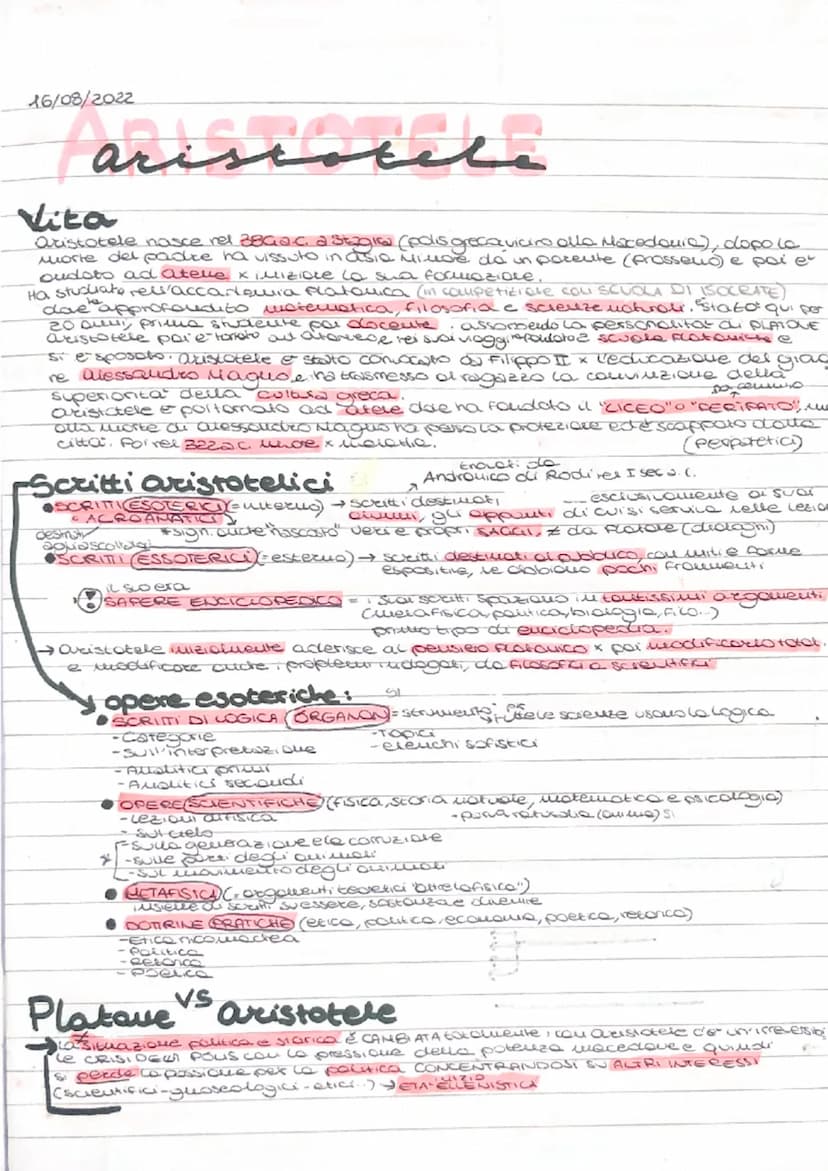 16/08/2022
ARISTOTELE
aristotele
Vita
aristotele nasce nel 384 a.c. a Stagira (polis greca vicino alla Macedonia), dopo la
morte del padre ha vissuto in Asia Minore da un parente (prosseno) e poi e'
andato ad atene x iniziare la sua formazione.
Ha studiato nell'accademia platonica (in competizione con SCUOLA DI ISOCRATE)
dove ha approfondito matematica, filosofia e scienze naturali. E' stato qui per
20 anni, prima studente poi docente. assorbendo la personalita' di PLATONE
aristotele poi e' tornato ad e nei suoi viaggi ha fondato 2 scuole platoniche e
si e' sposato. aristotele e' stato convocato da Filippo II x l'educazione del giova
ne Alessandro Magno e ha trasmesso al ragazzo la convinzione della
superiorita' della cultura greca.
aristotele e' poi tornato ad atene dove ha fondato il "LICEO" o "PERIPATO", ma
alla morte di alessandro Magno ha perso la protezione ed è scappato dalla
citta'. Poi nel 322 a.c. muore x malattia. (peripatetici)
Scritti aristotelici
trovati da
Andronico di Rodi nel I sec a.c.
SCRITTI ESOTERICI (= interno) → scritti destinati esclusivamente ai suoi
o ACROAMATICI alunni, gli appunti di cui si serviva nelle lezioni
destinati *sign. anche "nascosto" veri e propri SAGGI, ≠ da Platone (dialoghi)
SCRITTI ESSOTERICI (= esterno) → scritti destinati al pubblico, con miti e forme
espositive, ne abbiamo pochi frammenti
il suo era
! SAPERE ENCICLOPEDICO = i suoi scritti spaziano in tantissimi argomenti
(metafisica, politica, biologia, fisica..)
primo tipo di enciclopedia.
→ aristotele inizialmente aderisce al pensiero platonico x poi modificarlo total.
e modificare anche i problemi indagati, da filosofici a scientifici
opere esoteriche:
SCRITTI DI LOGICA (ORGANON) = strumento: tutte le scienze usano la logica
-Categorie -Topici
-Sull'interpretazione -elenchi sofistici
-Analitici primi
-Analitici secondi
OPERE SCIENTIFICHE (fisica, storia naturale, matematica e psicologia)
-Lezioni di fisica
-Sul cielo
-Sulla generazione e la corruzione
* -sulle parti degli animali
-Sul movimento degli animali
METAFISICA (= argomenti teoretici "oltre la fisica")
insieme di scritti su essere, sostanza e divenire
DOTTRINE PRATICHE (etica, politica, economia, poetica, retorica)
-Etica nicomachea
-Politica
-Retorica
-Poetica
Platone VS aristotele
→ La situazione politica e storica È CAMBIATA totalmente, con aristotele c'e' un'irreversibi
le CRISI DELLE POLIS con la pressione della potenza macedone e quindi
si perde la passione per la politica CONCENTRANDOSI SU ALTRI INTERESSI
(scientifici-gnoseologici-etici..) → inizio ETA' ELLENISTICA